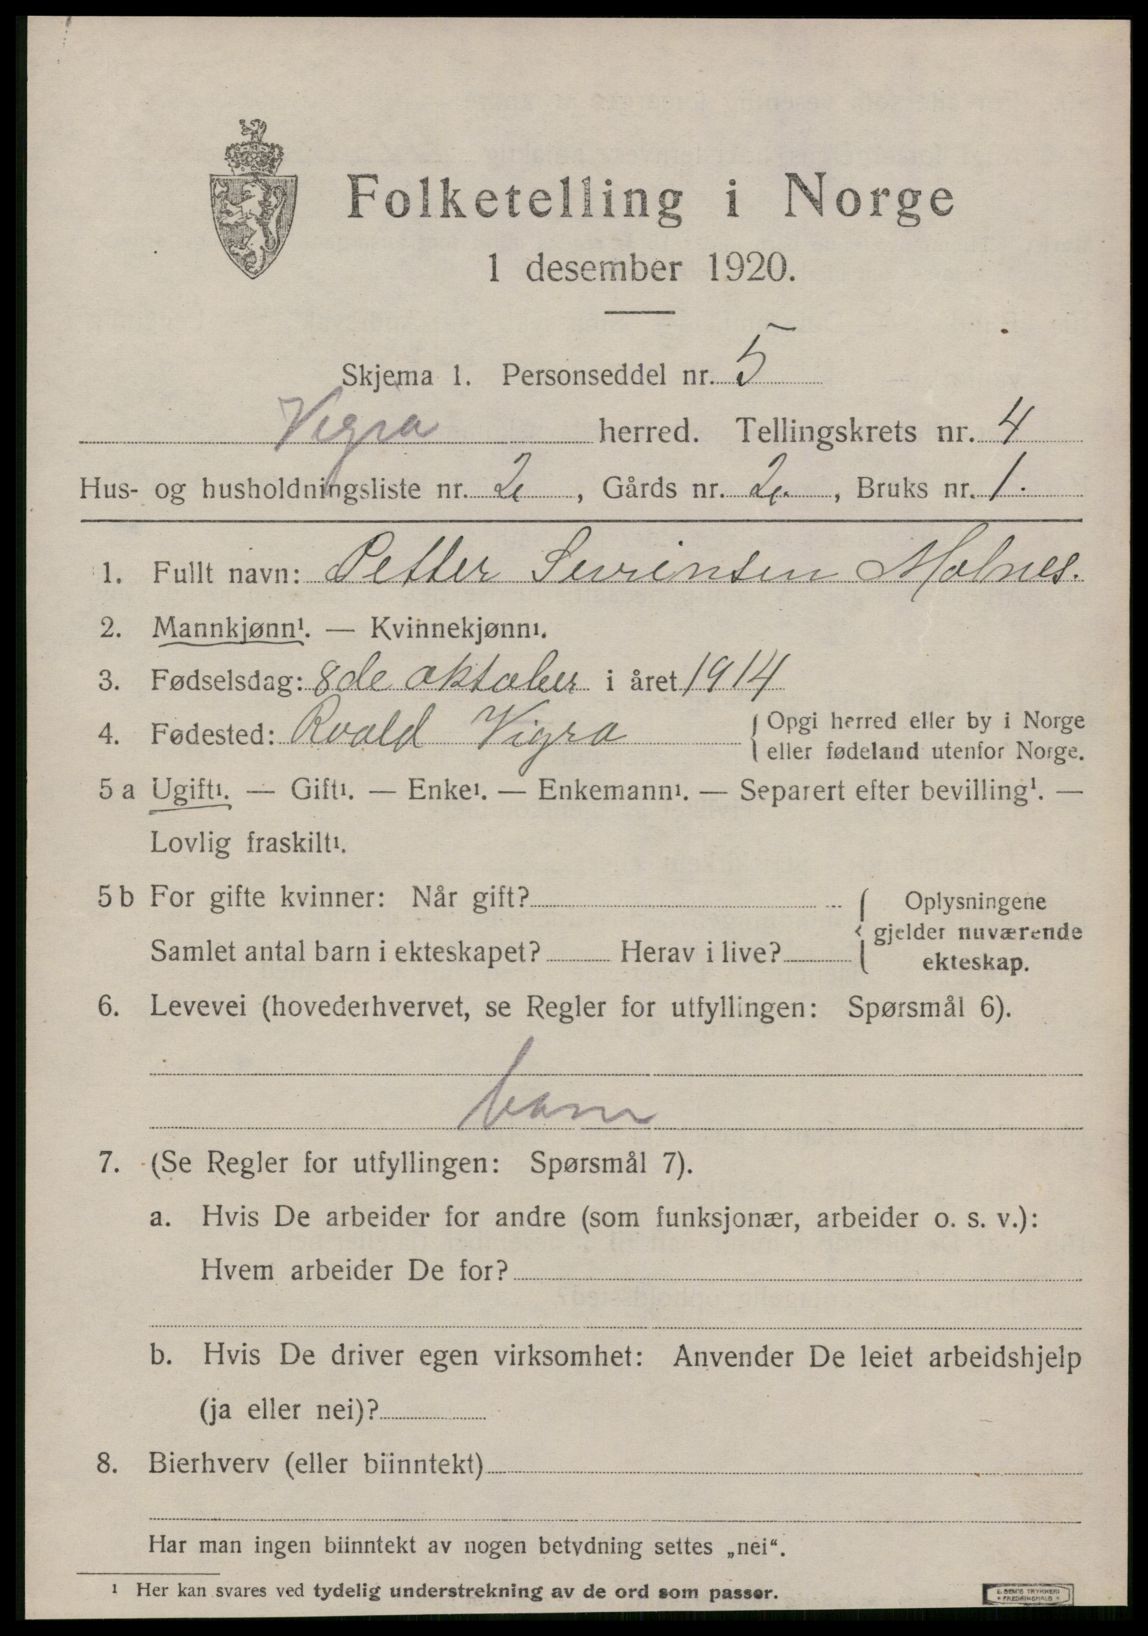 Folketelling i Norge
1 desember 1920.
Skjema 1. Personseddel nr. 5
Vigra herred. Tellingskrets nr. 4
Hus- og husholdningsliste nr. 2, Gårds nr. 2, Bruks nr. 1.
1. Fullt navn: Petter Sevrinsen Molnes.
2. Mannkjønn¹. — Kvinnekjønn¹.
3. Fødselsdag: 8de oktober i året 1914
4. Fødested: Roald Vigra { Opgi herred eller by i Norge
eller fødeland utenfor Norge.
5 a Ugift¹. — Gift¹. — Enke¹. — Enkemann¹. — Separert efter bevilling¹. —
Lovlig fraskilt¹.
5 b For gifte kvinner: Når gift? { Oplysningene
gjelder nuværende
Samlet antal barn i ekteskapet? Herav i live?
ekteskap.
6. Levevei (hovederhvervet, se Regler for utfyllingen: Spørsmål 6).
barn
7. (Se Regler for utfyllingen: Spørsmål 7).
a. Hvis De arbeider for andre (som funksjonær, arbeider o. s. v.):
Hvem arbeider De for?
b. Hvis De driver egen virksomhet: Anvender De leiet arbeidshjelp
(ja eller nei)?
8. Bierhverv (eller biinntekt)
Har man ingen biinntekt av nogen betydning settes „nei“.
¹ Her kan svares ved tydelig understrekning av de ord som passer.
E. SEM'S TRYKKERI
FREDRIKSHALD